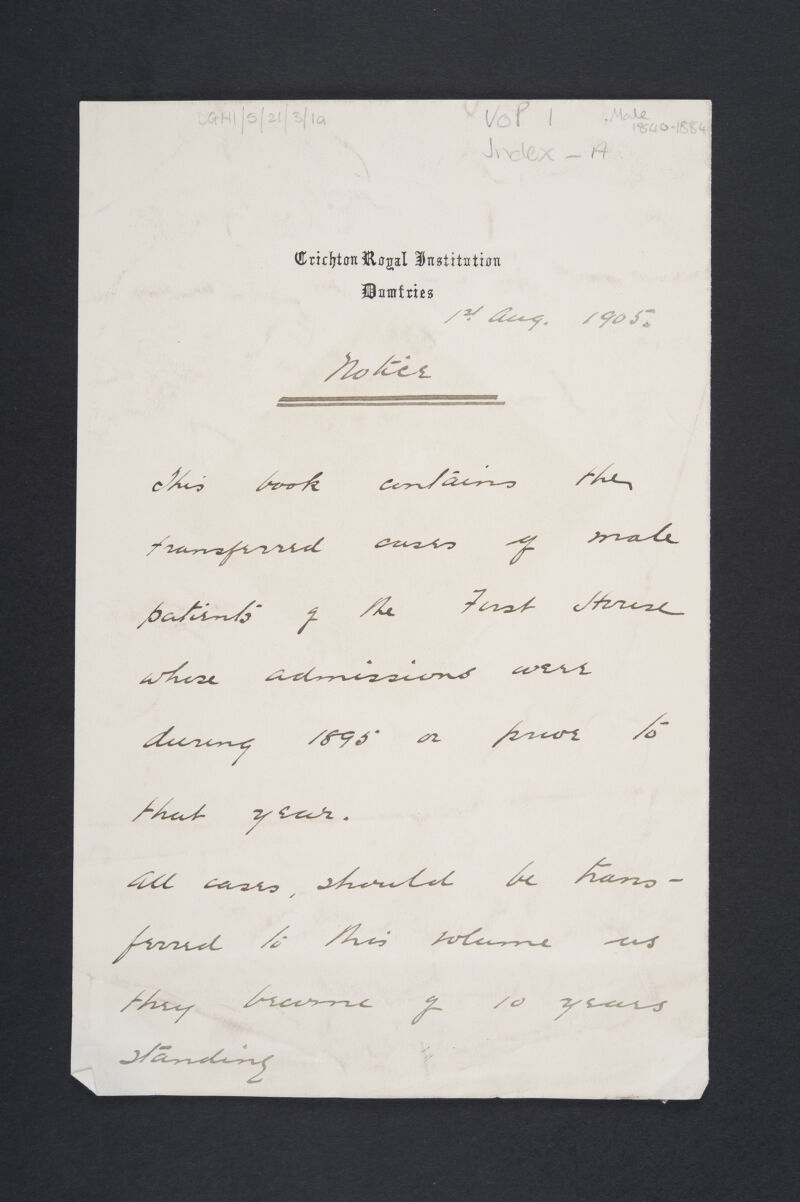 DGH1/5/21/3/1a
Vol 1
Index - A
Male
1840-1884
Crichton Royal Institution
Dumfries
1st Aug. 1905.
Notice
This book contains the
transferred cases of male
patients of the First House
whose admissions were
during 1895 or prior to
that year.
All cases, should be trans-
ferred to this volume as
they become of 10 years
standing